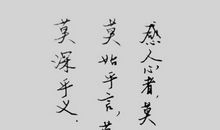 感人心者,莫
莫始乎言,莫
莫深乎义.